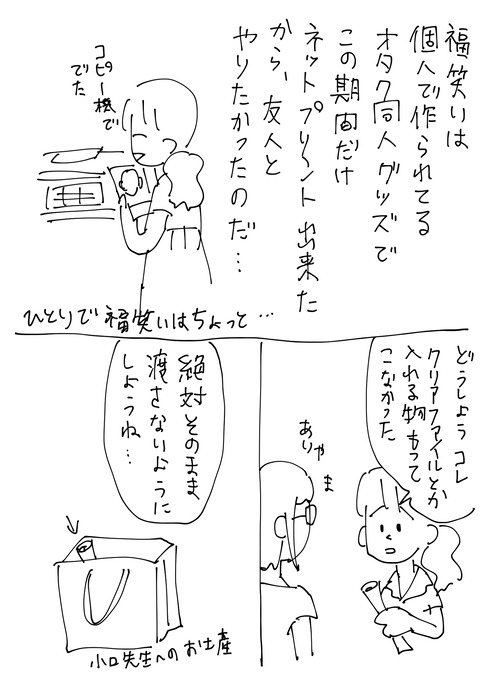 福笑いは
個人で作られてる
オタク同人グッズで
この期間だけ
ネットプリント出来た
から、友人と
やりたかったのだ…
コピー機で
でた
ひとりで福笑いはちょっと…
どうしよう コレ
クリアファイルとか
入れる物もって
こなかった
ありゃ
ま
絶対そのまま
渡さないように
しようね…
小口先生へのお土産